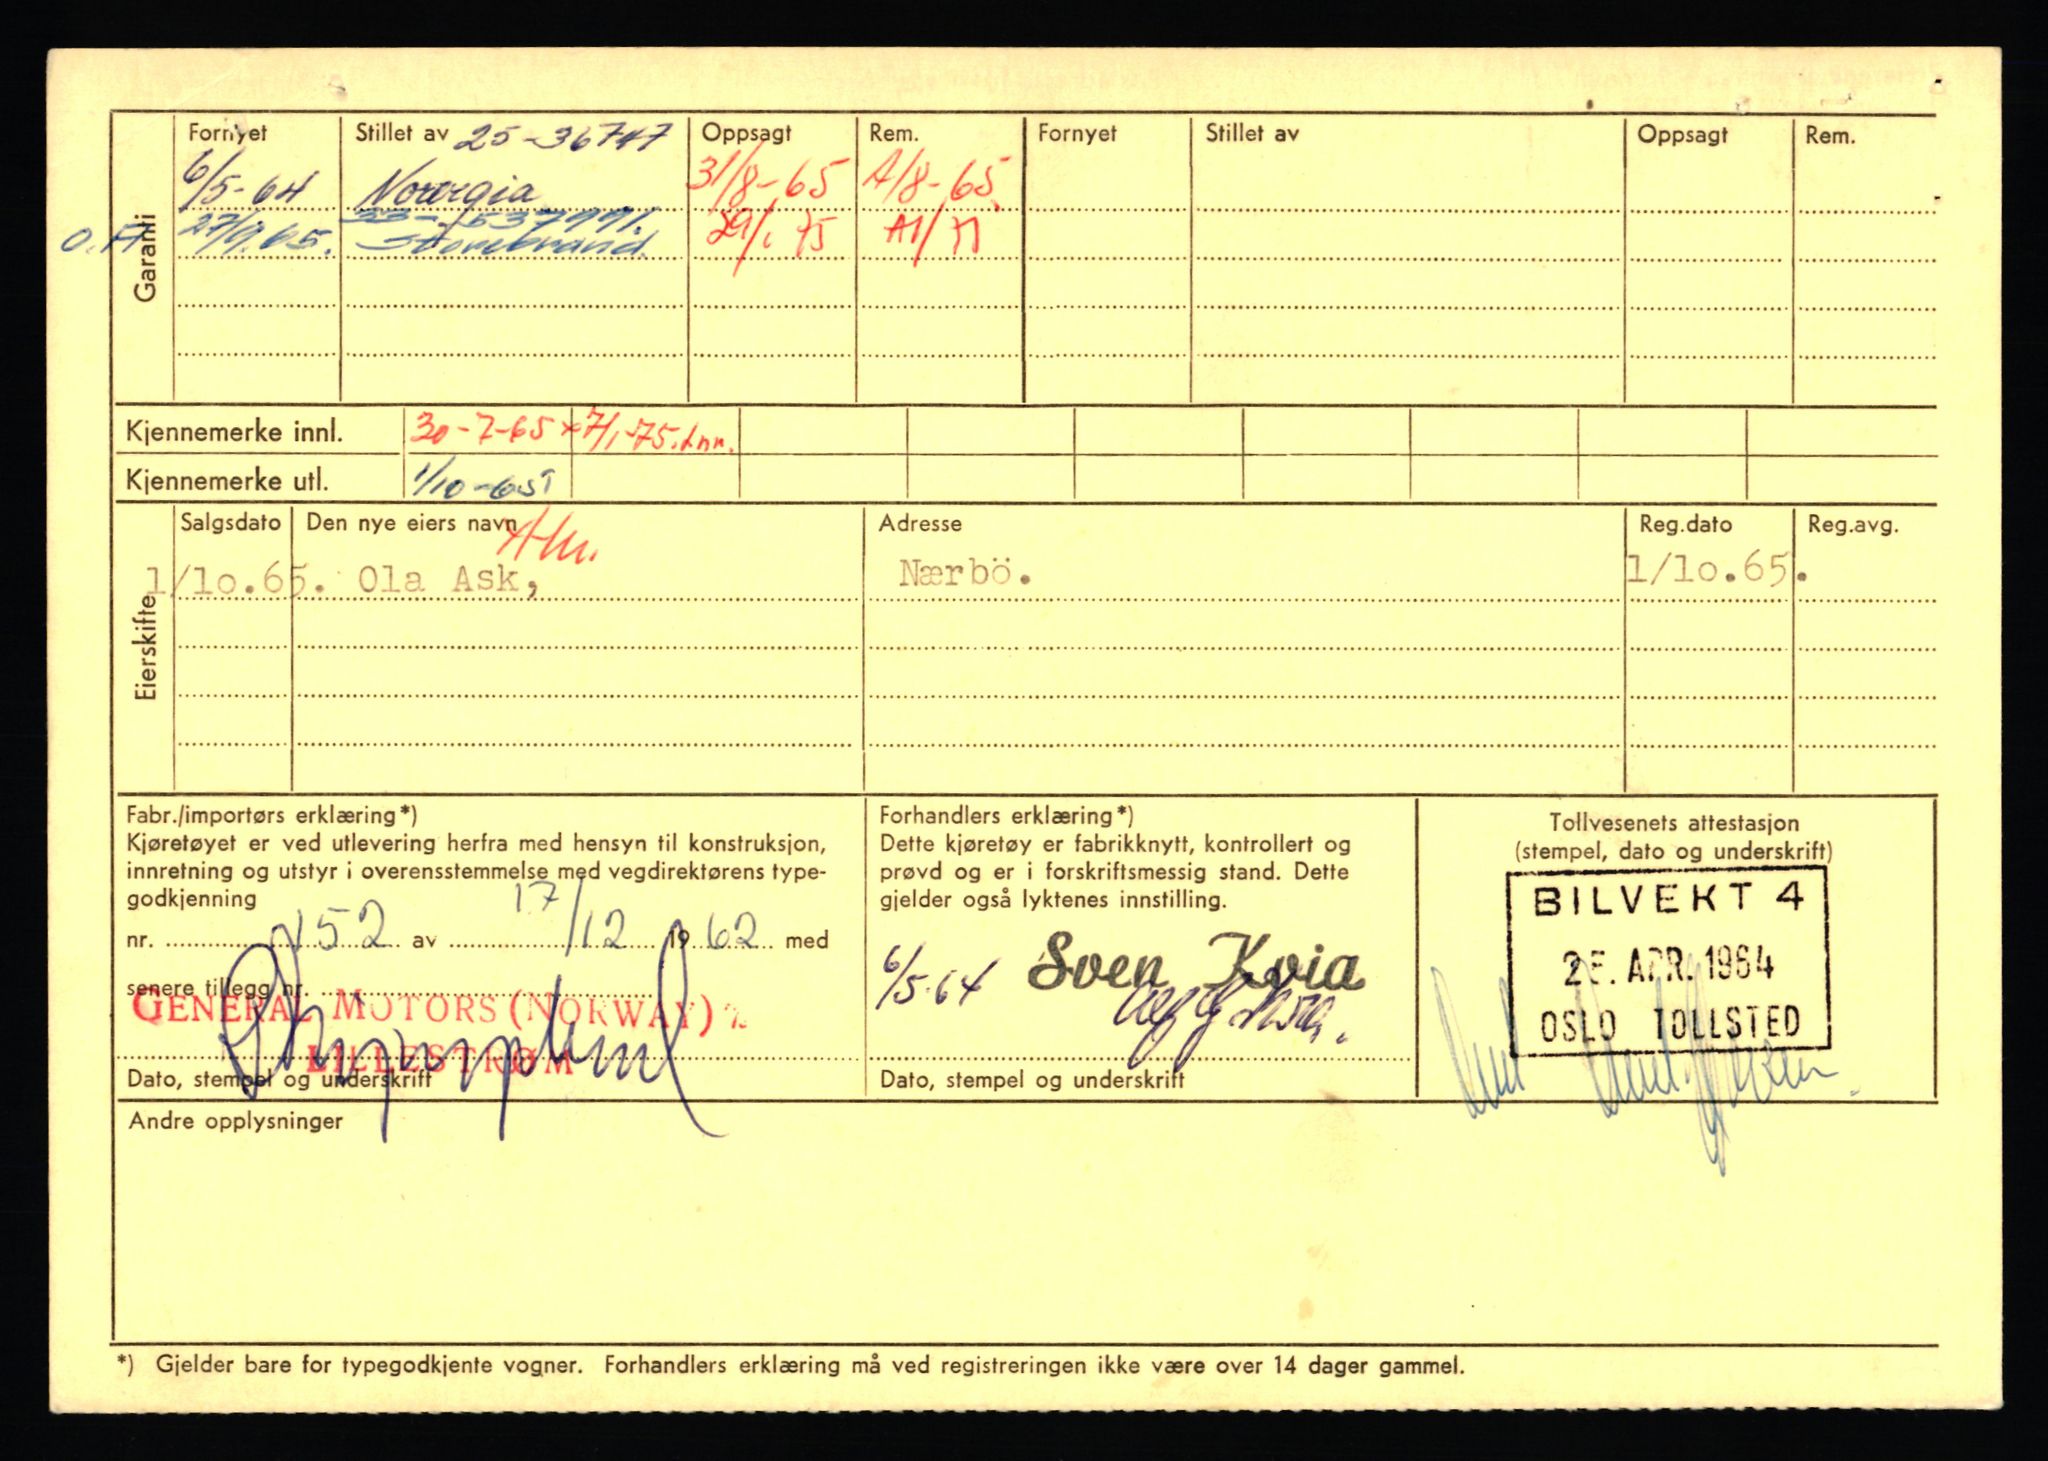 Garanti
Fornyet Stillet av 25-36747 Oppsagt Rem. Fornyet Stillet av Oppsagt Rem.
6/5-64 Norvegia 31/8-65 A/8-65.
27/9.65. Storebrand. 29/1 75
Kjennemerke innl. 30-7-65 7/1-75.
Kjennemerke utl. 1/10-65
Eierskifte
Salgsdato Den nye eiers navn Adresse Reg.dato Reg.avg.
1/10.65. Ola Ask, Nærbö. 1/10.65.
Fabr./importørs erklæring*)
Kjøretøyet er ved utlevering herfra med hensyn til konstruksjon,
innretning og utstyr i overensstemmelse med vegdirektørens type-
godkjenning
nr. 1152 av 17/12 1962 med
senere tillegg nr.
GENERAL MOTORS (NORWAY)
LILLESTRØM
Dato, stempel og underskrift
Forhandlers erklæring*)
Dette kjøretøy er fabrikknytt, kontrollert og
prøvd og er i forskriftsmessig stand. Dette
gjelder også lyktenes innstilling.
6/5-64 Sven Kvia
Dato, stempel og underskrift
Tollvesenets attestasjon
(stempel, dato og underskrift)
BILVEKT 4
25. APR. 1964
OSLO TOLLSTED
Andre opplysninger
*) Gjelder bare for typegodkjente vogner. Forhandlers erklæring må ved registreringen ikke være over 14 dager gammel.